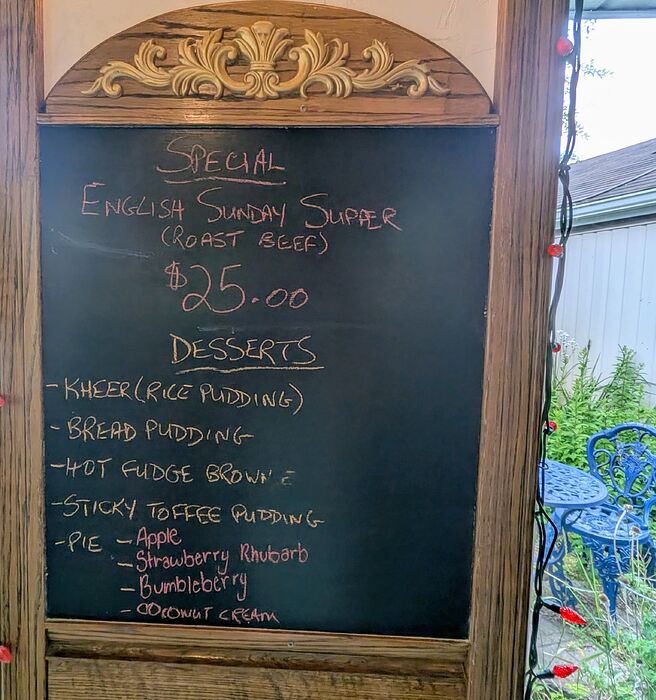 SPECIAL
ENGLISH SUNDAY SUPPER
(ROAST BEEF)
$25.00
DESSERTS
- KHEER (RICE PUDDING)
- BREAD PUDDING
- HOT FUDGE BROWNIE
- STICKY TOFFEE PUDDING
- PIE - Apple
- Strawberry Rhubarb
- Bumbleberry
- COCONUT CREAM